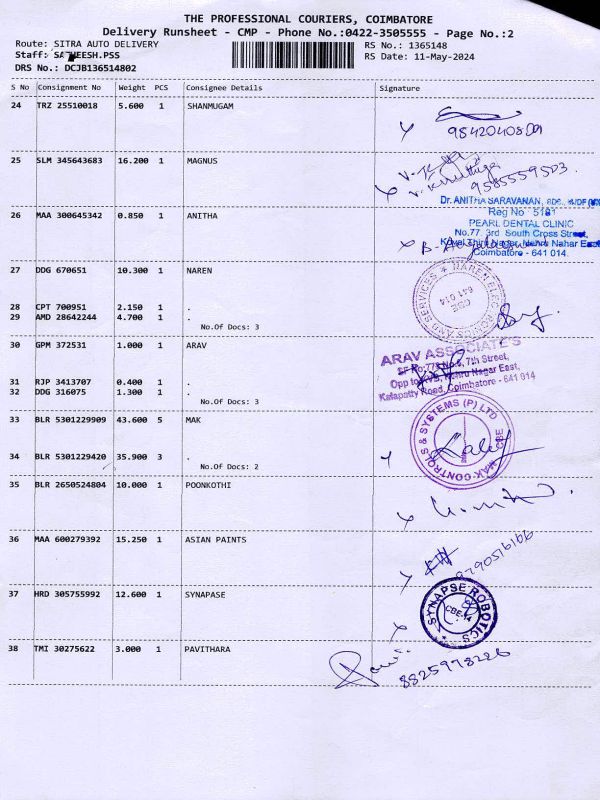 THE PROFESSIONAL COURIERS, COIMBATORE
Delivery Runsheet - CMP - Phone No.:0422-3505555 - Page No.:2
Route: SITRA AUTO DELIVERY
RS No.: 1365148
Staff: SATHEESH.PSS
RS Date: 11-May-2024
DRS No.: DCJB136514802
S No Consignment No Weight PCS Consignee Details Signature
24 TRZ 25510018 5.600 1 SHANMUGAM
25 SLM 345643683 16.200 1 MAGNUS
9585559503.
Dr. ANITHA SARAVANAN,
Reg No 5191
26 MAA 300645342 0.850 1 ANITHA
PEARL DENTAL CLINIC
No.77, 3rd South Cross Street,
Nehru Nahar East
Coimbatore - 641 014.
27 DDG 670651 10.300 1 NAREN
28 CPT 700951 2.150 1 .
29 AMD 28642244 4.700 1 .
No.Of Docs: 3
30 GPM 372531 1.000 1 ARAV
ARAV ASSOCIATE'S
7th Street,
Nehru Nagar East,
Kalapatty Road, Coimbatore - 641 014
31 RJP 3413707 0.400 1 .
32 DDG 316075 1.300 1 .
No.Of Docs: 3
33 BLR 5301229909 43.600 5 MAK
MAK CONTROLS & SYSTEMS (P) LTD
CBE
34 BLR 5301229420 35.900 3 .
No.Of Docs: 2
35 BLR 2650524804 10.000 1 POONKOTHI
36 MAA 600279392 15.250 1 ASIAN PAINTS
8790516166
37 HRD 305755992 12.600 1 SYNAPASE
SYNAPSE ROBOTICS
CBE-14
38 TMI 30275622 3.000 1 PAVITHARA
8825973226